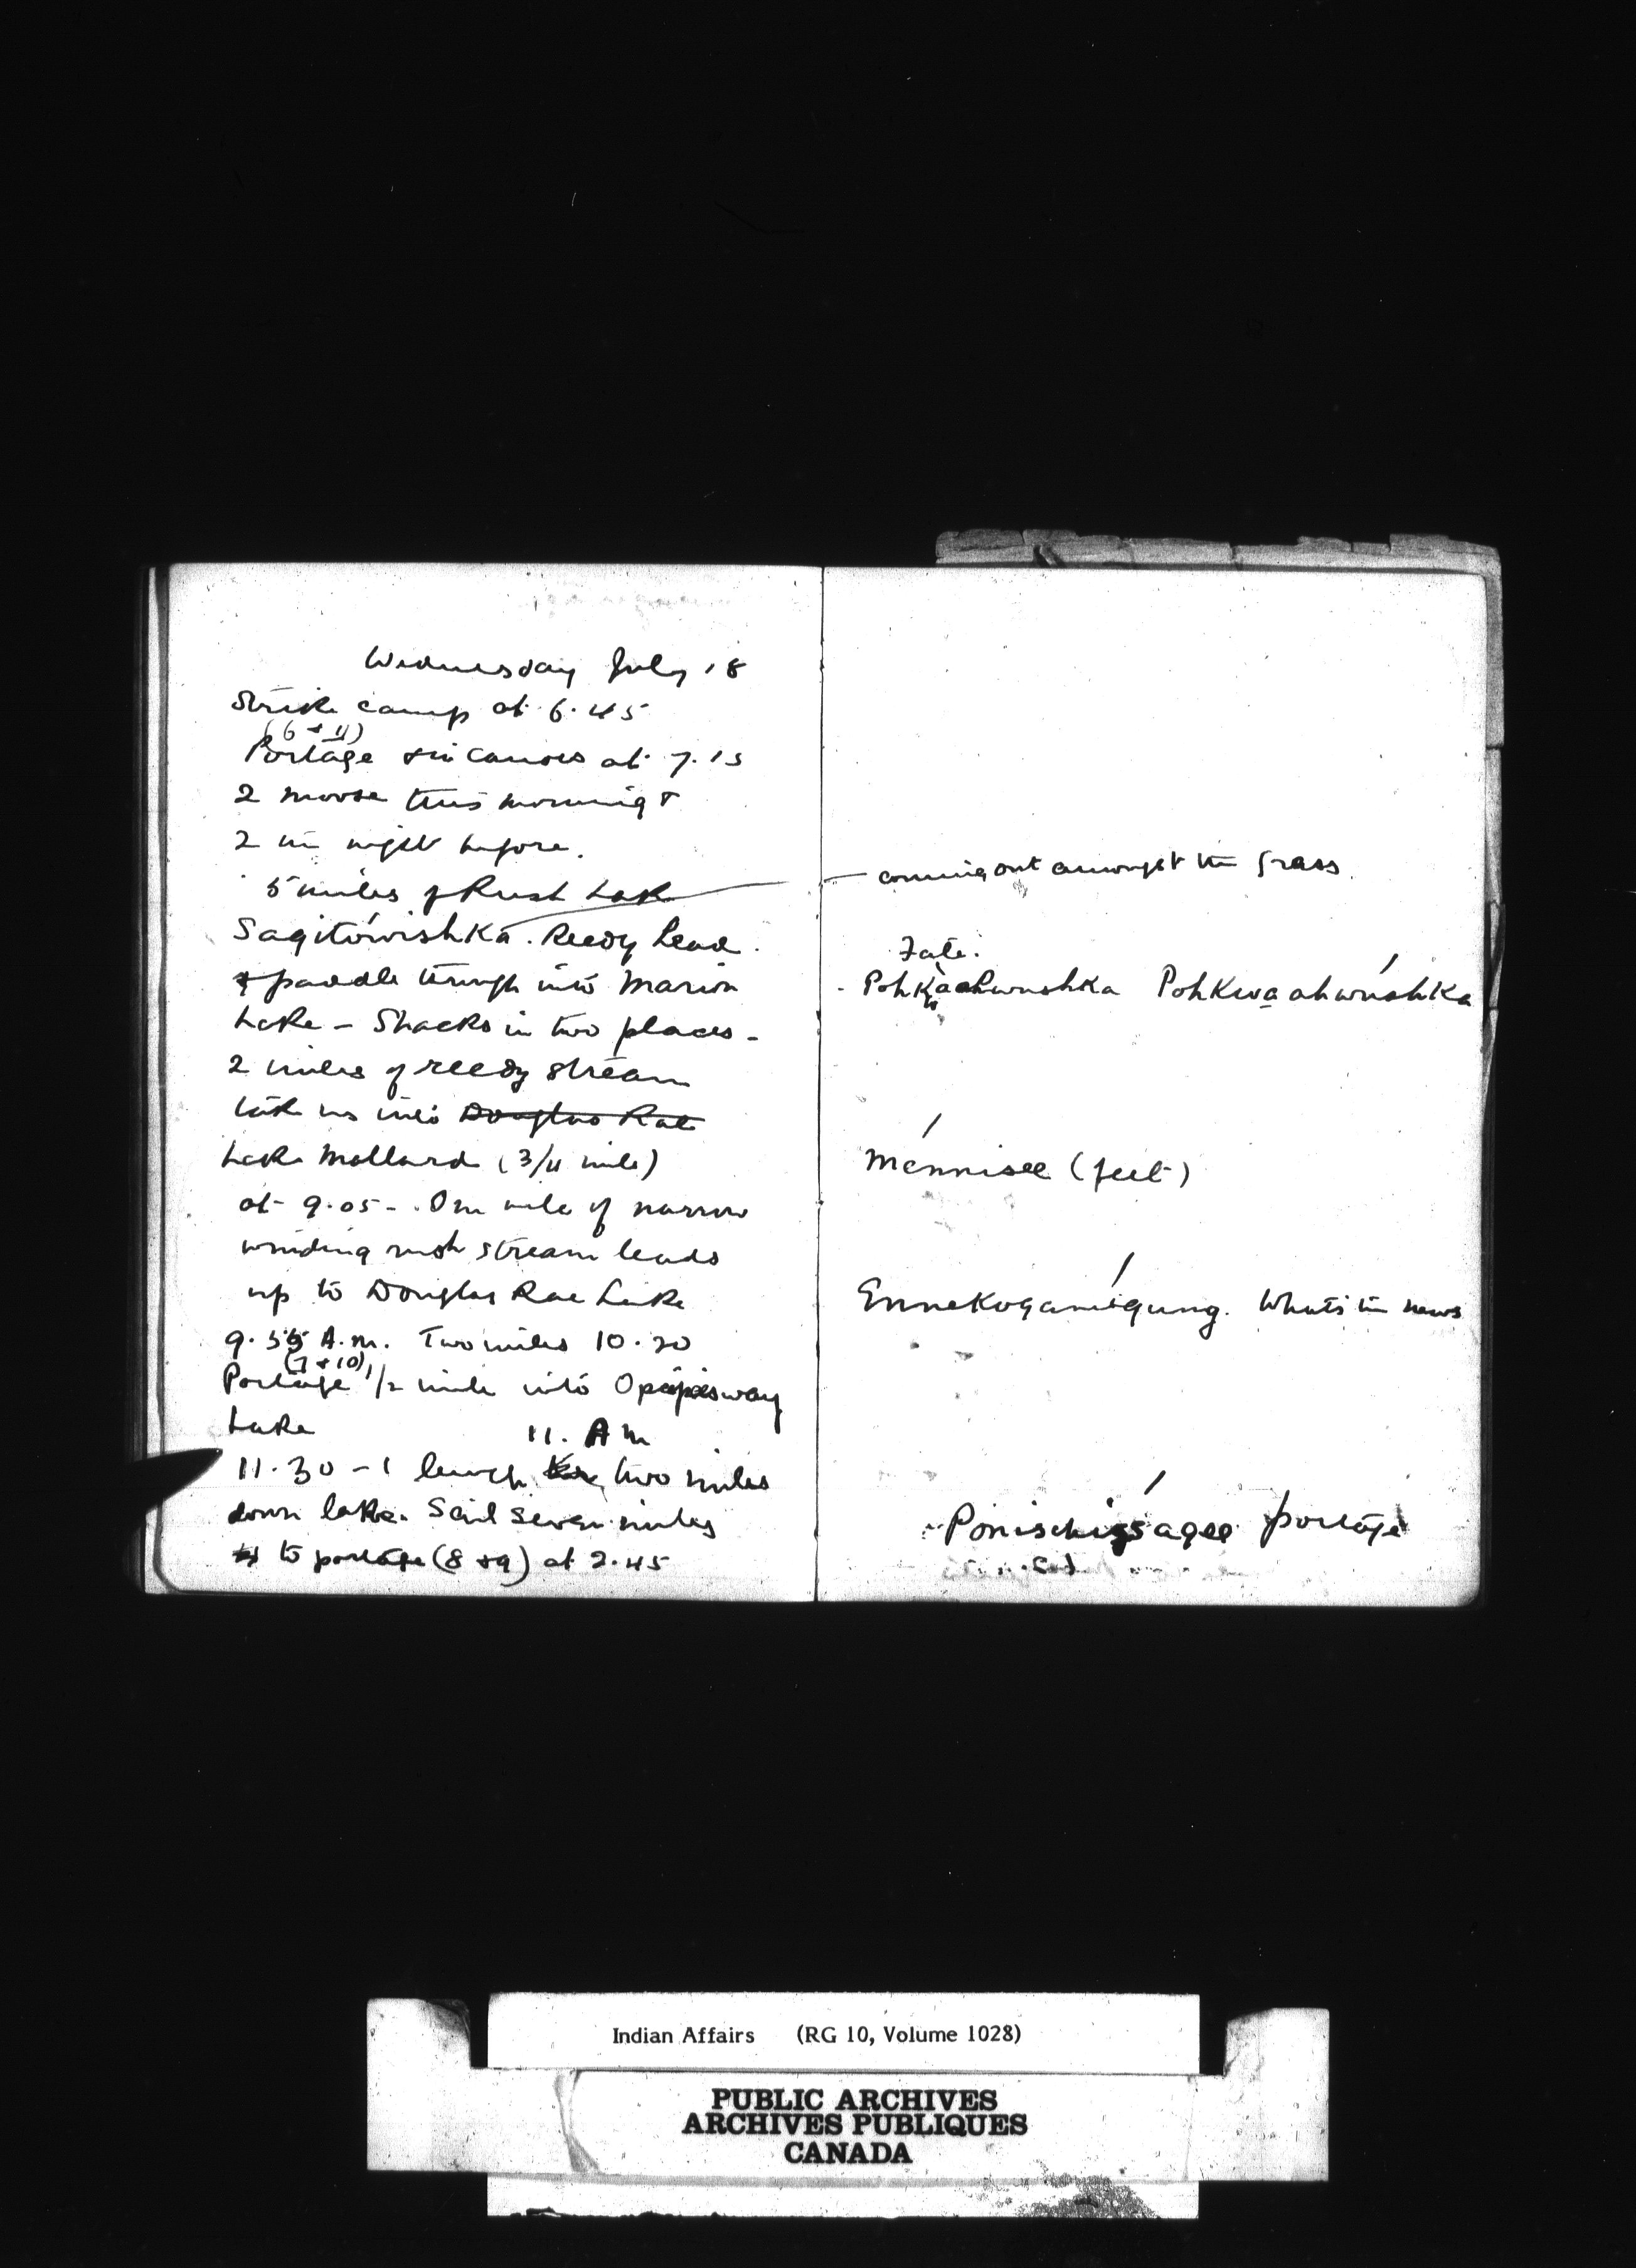 Wednesday July 18
Strike camp at 6.45
(6 + 11)
Portage & in canoes at 7.15
2 moose this morning &
2 the night before.
5 miles of Rush Lake
Sagitówishka. Reedy Lead.
& paddle through into Marion
Lake – Shacks in two places –
2 miles of reedy stream
take us into Douglas Rae
Lake Mallard (3/4 mile)
at 9.05 – . One mile of narrow
winding rush stream leads
up to Douglas Rae Lake
9.55 A.M. Two miles 10.20
(7 + 10)
Portage 1/2 mile into Opeepeesway
Lake 11. AM
11.30 – 1 lunch two miles
down lake. Sail seven miles
to portage (8 & 9) at 2.45
– coming out amongst the grass.
Pohkwaahwushka Pohkwaahwúshka
Ménnisee (feet)
Ennekogamígung. Whats the news
Ponischigságee portage
Indian Affairs (RG 10, Volume 1028)
PUBLIC ARCHIVES
ARCHIVES PUBLIQUES
CANADA